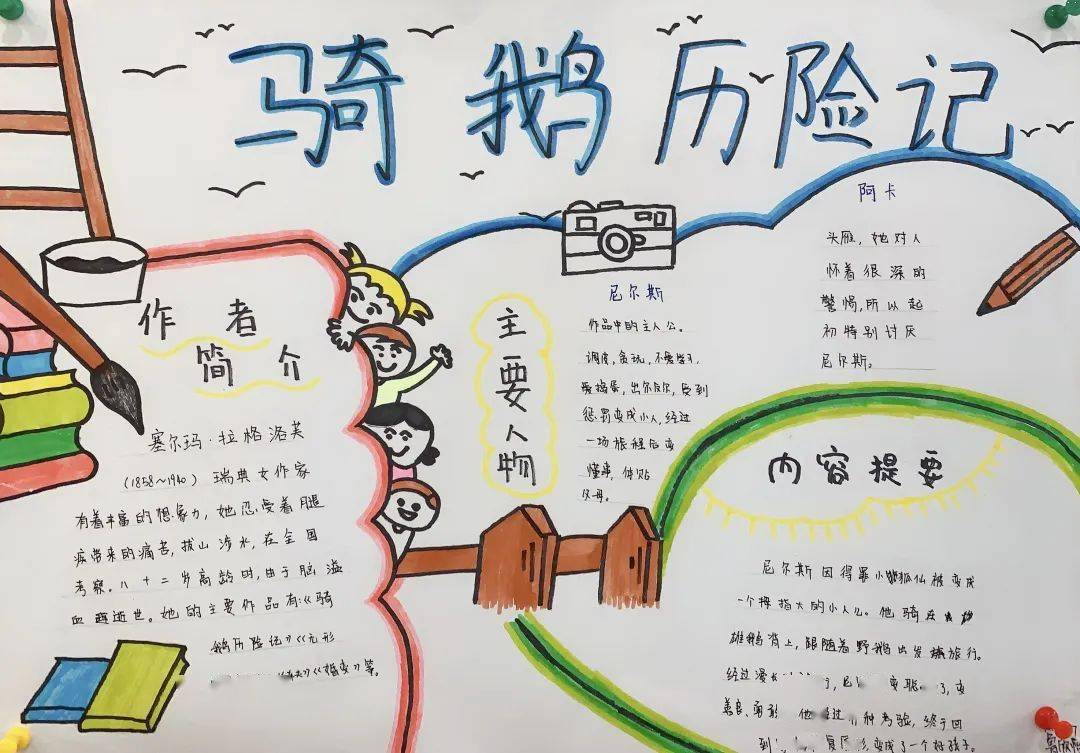 骑鹅历险记
作者
简介
塞尔玛·拉格洛芙
(1858~1940) 瑞典女作家
有着丰富的想象力，她忍受着腿
疾带来的痛苦，拔山涉水，在全国
考察。八十二岁高龄时，由于脑溢
血逝世。她的主要作品有:《骑
鹅历险记》《无形
》《婚变》等。
主要人物
尼尔斯
作品中的主人公。
调皮，贪玩，不爱学习，
爱捣蛋，出尔反尔，受到
惩罚变成小人，经过
一场旅程后变
懂事，体贴
父母。
阿卡
头雁，她对人
怀着很深的
警惕，所以起
初特别讨厌
尼尔斯。
内容提要
尼尔斯因得罪小狐仙被变成
一个拇指大的小人儿。他骑在
雄鹅背上，跟随着野鹅出发旅行。
经过漫长 变聪 了，变
善良、勇敢 他 种考验，终于回
到 变成了一个好孩子